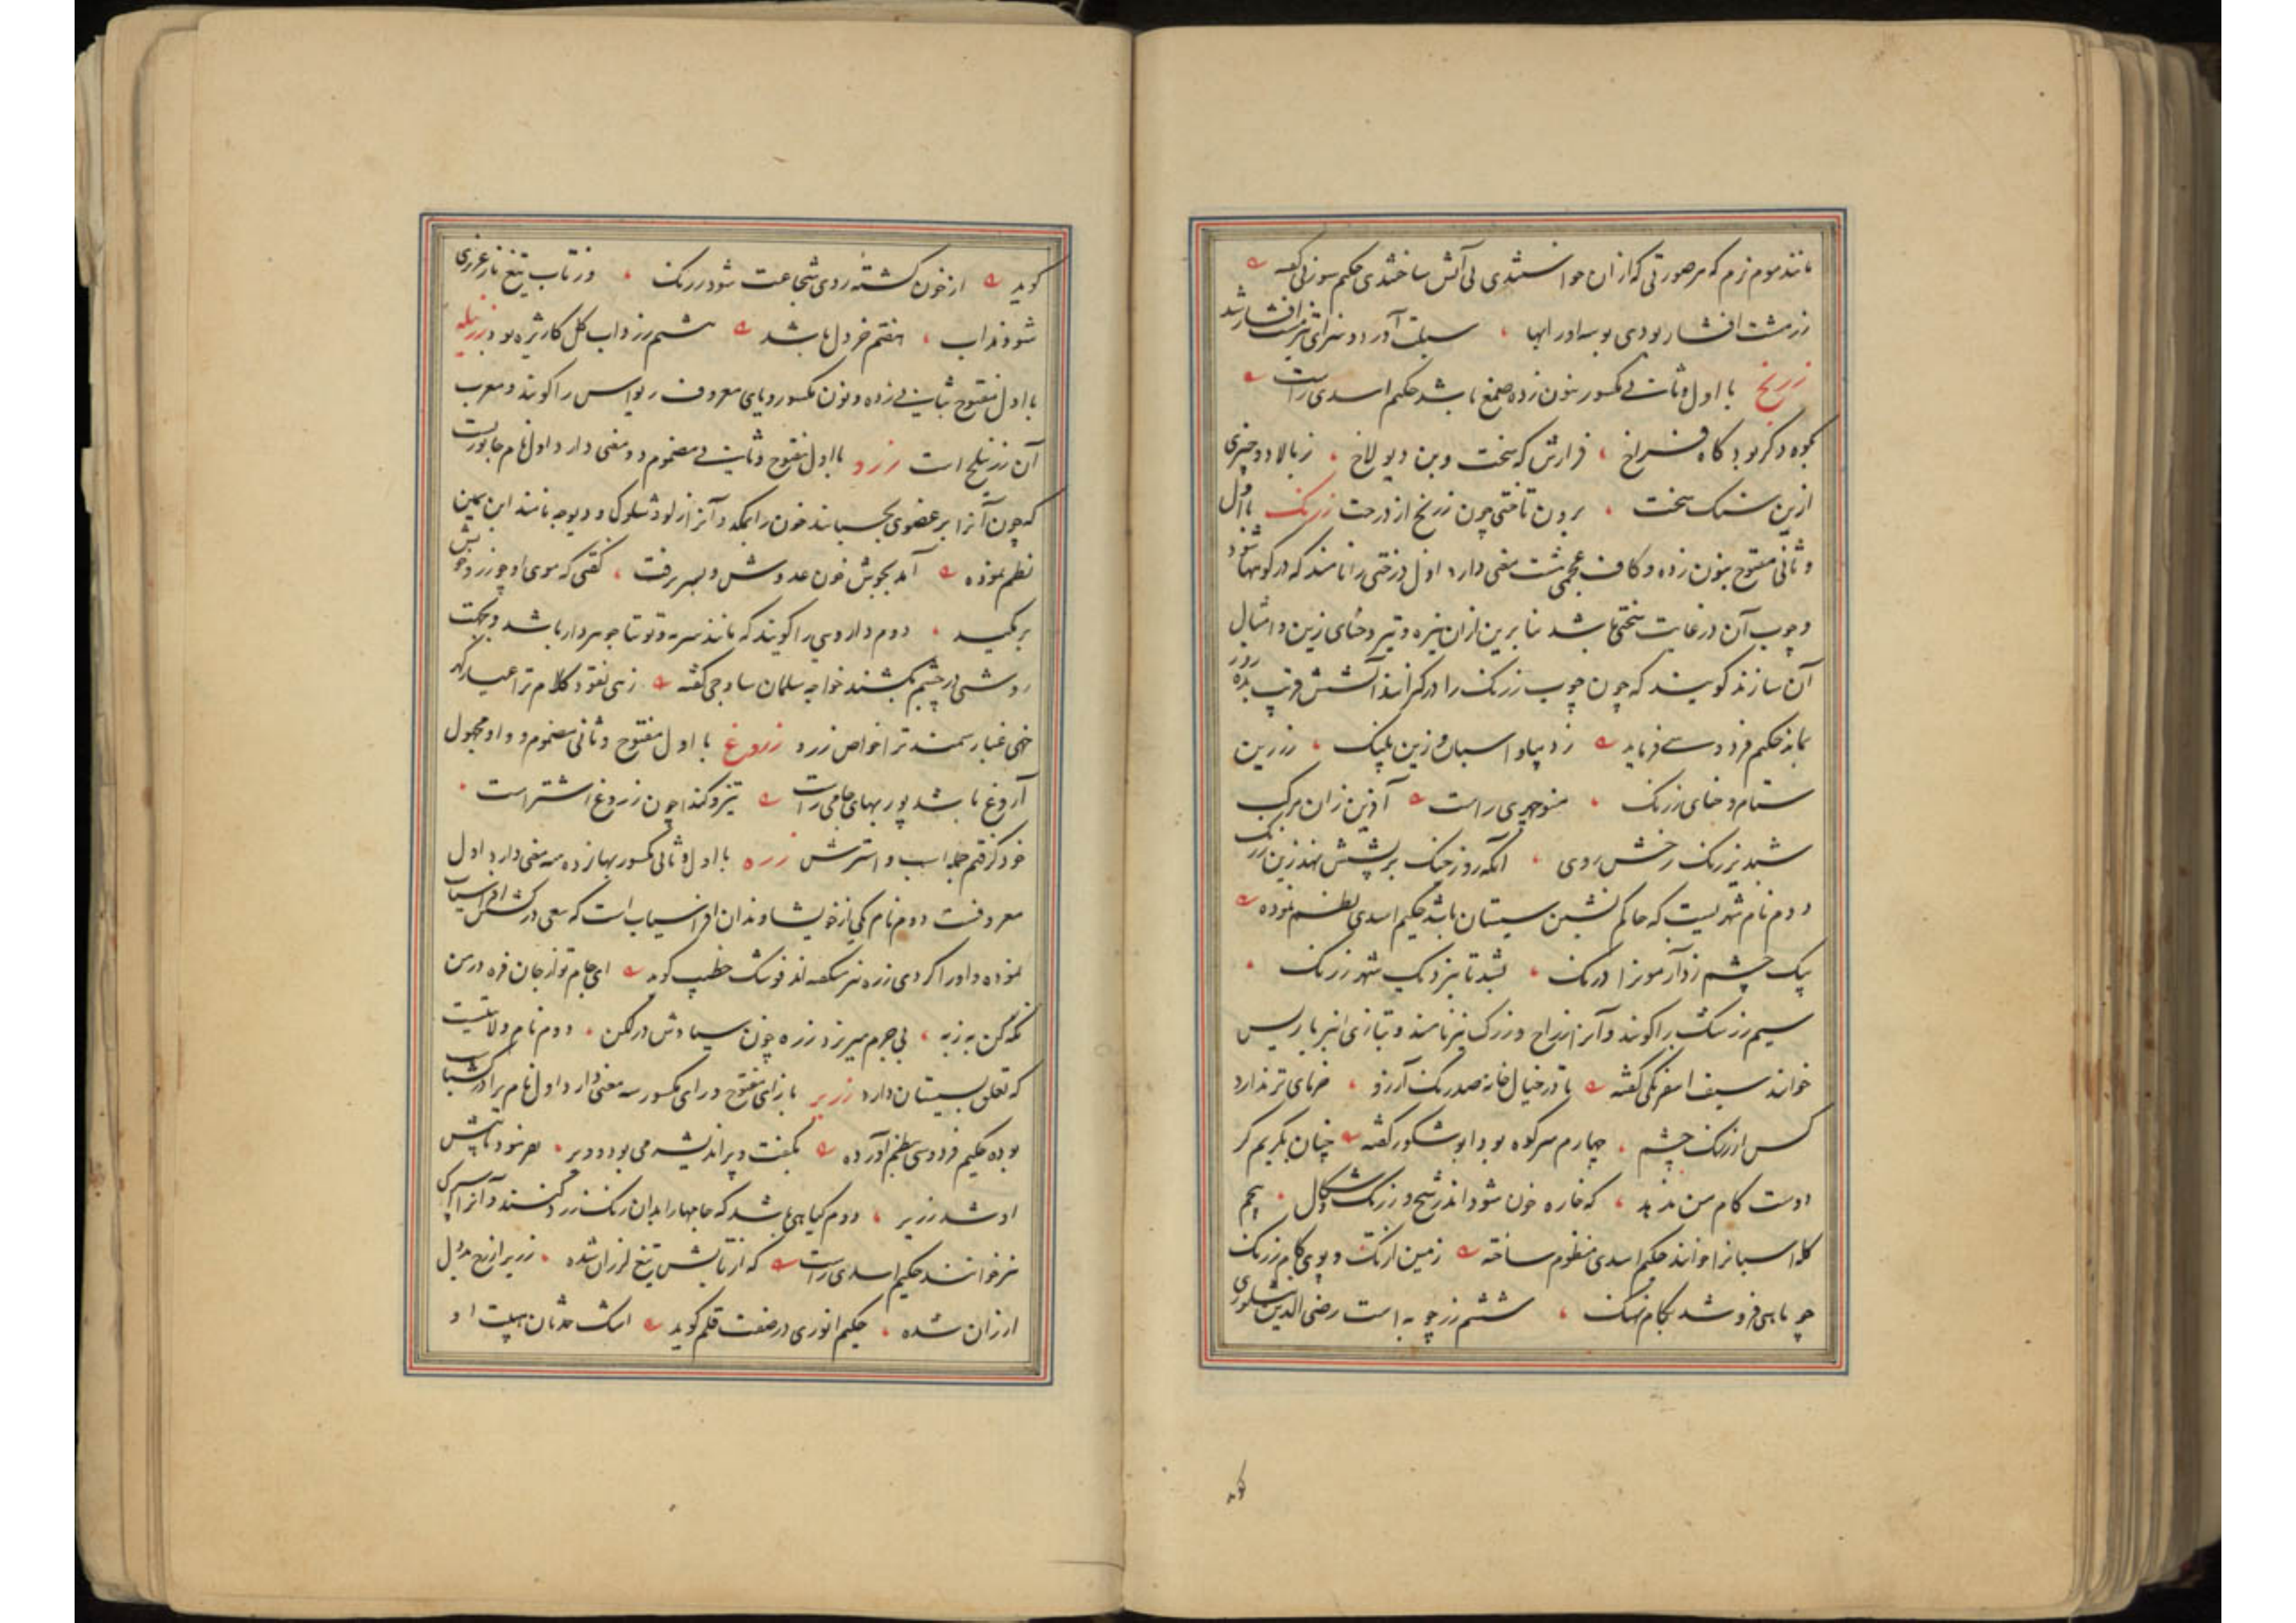 مانند موم نرم که هر صورتی که از ان خواستندی بی آتش ساختندی حکیم سوزنی گفته
زر مشت افشار بودی بوسه اور ابها ، سبلت آورد و سزای تیز مشت افشار شد
زرنخ با اول و ثانی مکسور بنون زده صمغ باشد حکیم اسدی راست
بکوه دکر بود کاه فراخ ، فرازش که سخت و بن دیولاخ ، ز بالا دو چیزی
ازین سنک سخت ، برون تاختی چون زرنخ از درخت زرنک با اول
و ثانی مفتوح بنون زده و کاف عجمی شت معنی دارد اول درختی را نامند که در کوهها شود
و چوب آن در غایت سختی باشد بنا برین از ان نیزه و تیر و حنای زین و امثال
آن سازند کویند که چون چوب زرنک را در کیرانند آتشش قریب ده روز
بماند حکیم فردوسی فرماید ز دیبا و اسبان و زین پلنک ، زرین
ستام و حنای زرنک ، منوچهری راست آفرین زان مرکب
شبدیز رنک رخش روی ، آنکه روز جنک بر پشتش نهد زین زرنک
دوم نام شهریست که حاکم نشین سیستان باشد حکیم اسدی نظم نموده
بیک چشم زد آر موزا درنک ، بشد تا بنزدیک شهر زرنک ،
سیم زرشک را کویند و آنرا زراج و زرک نیز نامند و بتازی انبرباریس
خوانند سیف اسفرنکی گفته با در خیال خانه صد رنک آرزو ، خرمای تر ندارد
کس از زرنک چشم ، چهارم سر کوه بود ابو شکور گفته چنان بکریم کر
دوست کام من ندهد ، که خاره خون شود اندر شخ و زرنک زکال ، پنجم
کله اسبان را خوانند حکیم اسدی منظوم ساخته زمین ارنک و پوی کام زرنک
چو ماهی فرو شد بکام نهنک ، ششم زرچوبه است رضی الدین نیشابوری
کوید
کوید از خون کشته روی شجاعت شود زرنک ، وز تاب تیغ نارغرری
شود مذاب ، هفتم خردل باشد هشتم زرداب کل کاژیره بود زرنیله
با اول مفتوح بثانی زده و نون مکسور و یای معروف ریواس را کویند و معرب
آن زرنیلج است زرو با اول مفتوح و ثانی مضموم دو معنی دارد اول نام جانوریست
که چون آنرا بر عضوی بچسبانند خون را بمکد و آنرا زلو و شلوک و دیوچه نامند ابن یمین
نظم نموده آمد بجوش خون عدوش و بسر برفت ، گفتی که موی او چو زرو خونش
بر مکید ، دوم داروئی را کویند که مانند سرمه و توتیا جوهردار باشد و بجهت
روشنی در چشم کشند خواجه سلمان ساوجی گفته زهی نقود کلام ترا عیار کهر
خهی غبار سمند ترا خواص زرو زروغ با اول مفتوح و ثانی مضموم و واو مجهول
آروغ باشد پوربهای جامی راست تیز و کندا چون زروغ اشتراست ،
خود کرفتم جمله اسب و استرش زره با اول و ثانی مکسور بها زده سه معنی دارد اول
معروفست دوم نام یکی از خویشاوندان افراسیاب است که سعی در کشتن سیاوش
نموده و اورا کردی زره نیز گفته اند فوشک خطیب کوید ای جام تو از جان فره در من
نکه کن به زبه ، بی جرم میرزد زره چون سیاوش در لکن ، دوم نام ولایتیست
که تعلق بسیستان دارد زریر با زای مفتوح و رای مکسور سه معنی دارد اول نام برادر کشتاسب
بوده حکیم فردوسی بنظم آورده بکفت و پر اندیشه می بود دیر ، هر سو دمانپش
او شد زریر ، دوم کیاهی باشد که جامها را بدان رنک زرد کنند و آنرا اسپرک
نیز خوانند حکیم اسدی راست که از تابش تیغ لرزان شده ، زریر از رخ بددل
ارزان شده ، حکیم انوری در صفت قلم کوید اشک حدثان بهیبت او